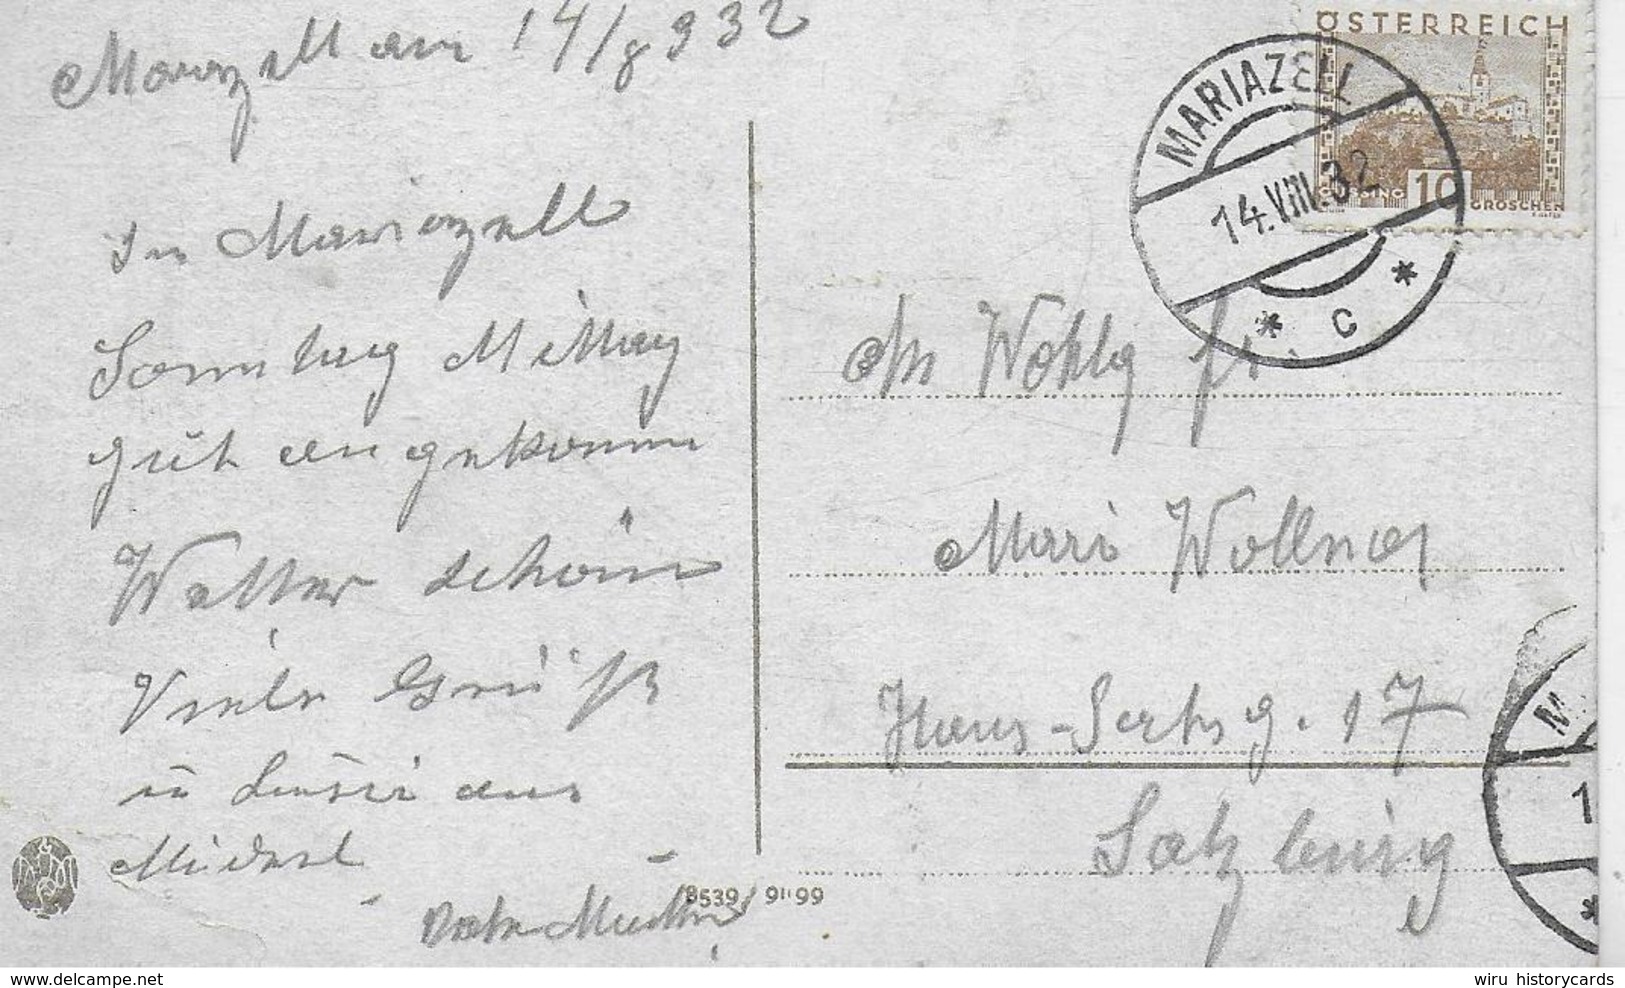 Mariazell am 14/8 932
In Mariazell
Sonntag Mittag
gut angekomm
Wetter schön
Viele Grüß
u
Vater Mutter
ÖSTERREICH
10
GROSCHEN
MARIAZELL
14.VIII.32
* C *
An Wohlg fr.
Mari Wollner
Hans-Sachsg. 17
Salzburg
8539 91 99
M
1
*
wiru historycards